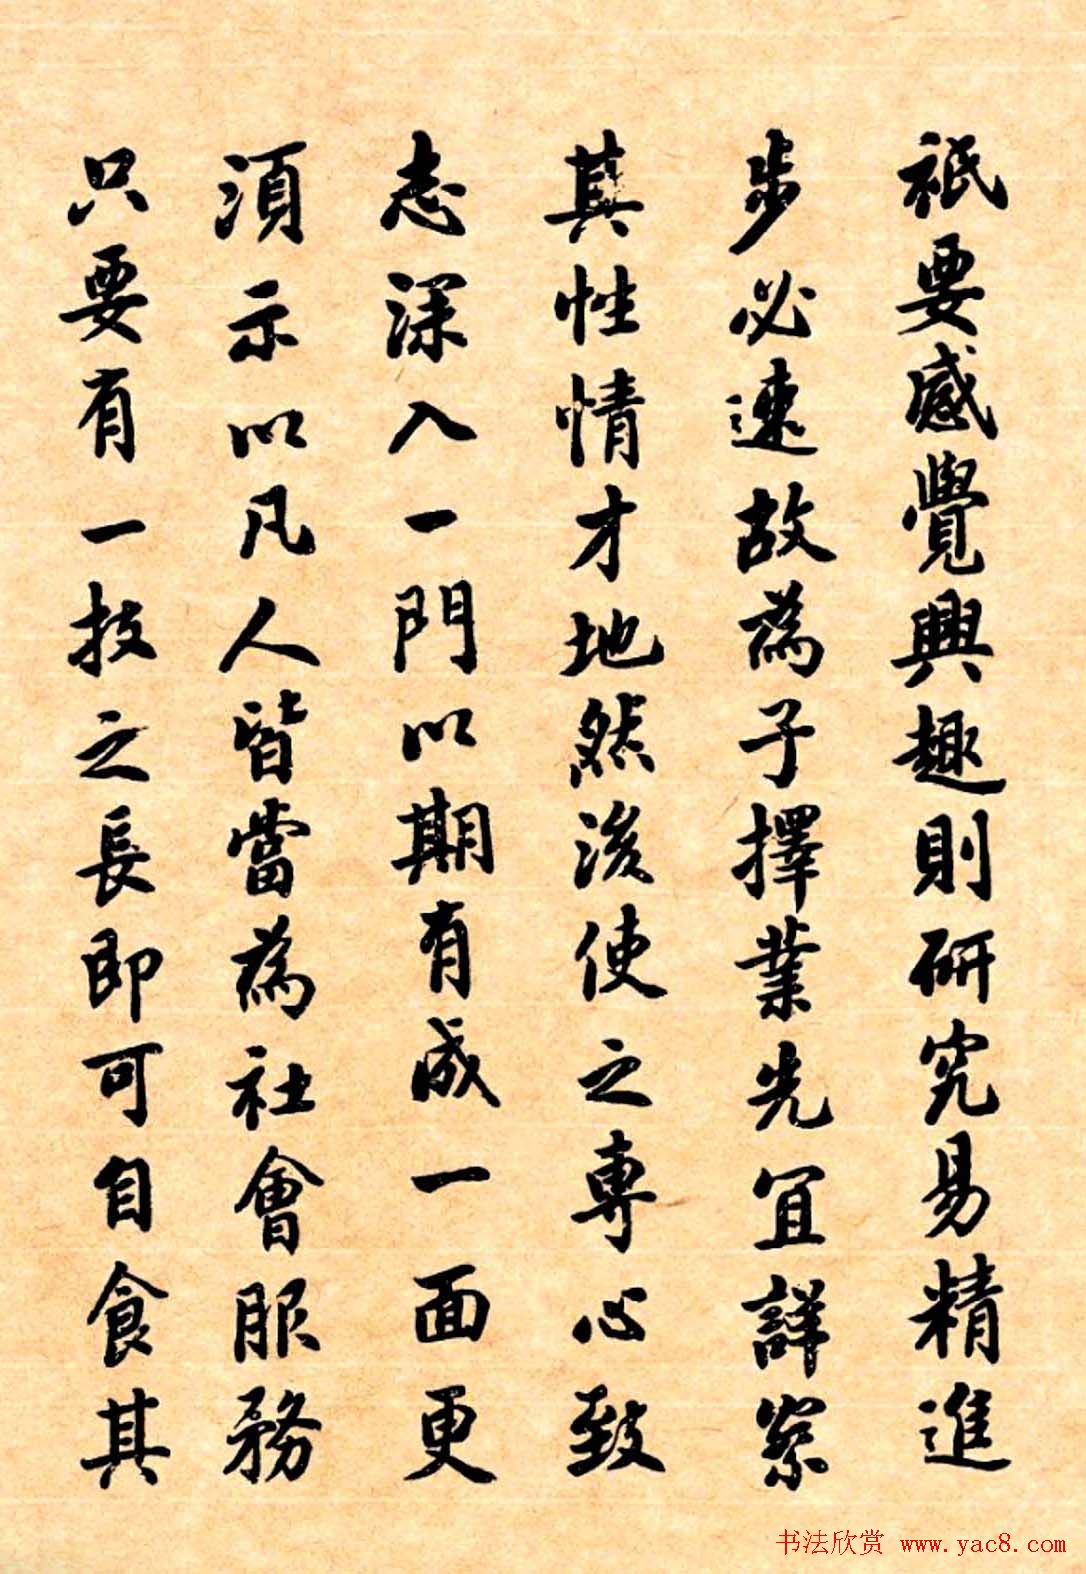 祇要感覺興趣則研究易精進
步必速故為子擇業先宜詳察
其性情才地然後使之專心致
志深入一門以期有成一面更
須示以凡人皆當為社會服務
只要有一技之長即可自食其
书法欣赏 www.yac8.com